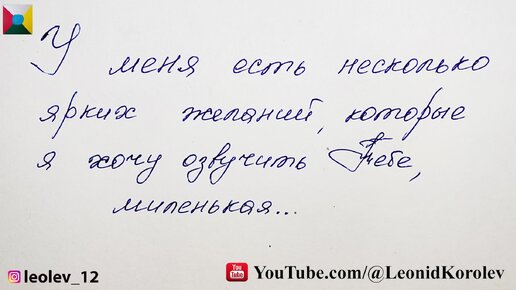 У меня есть несколько
ярких желаний, которые
я хочу озвучить Тебе,
миленькая...
leolev_12
You Tube YouTube.com/@LeonidKorolev